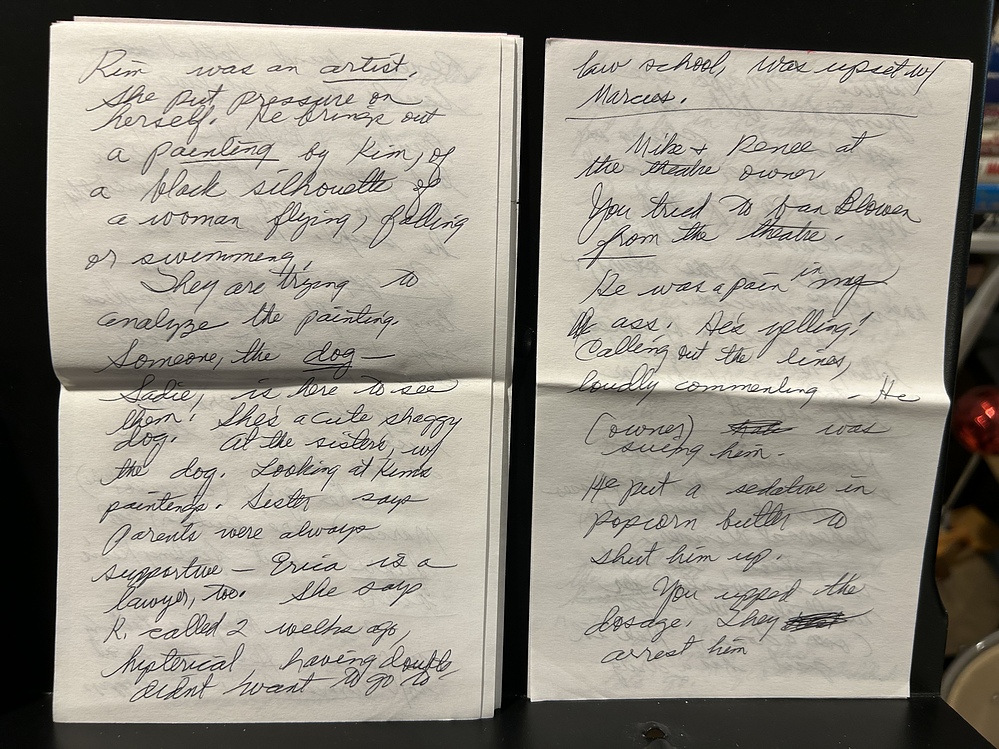 Kim was an artist.
She put pressure on
herself. He brings out
a painting by Kim, of
a black silhouette of
a woman flying, falling
or swimming.
They are trying to
analyze the painting.
Someone, the dog—
Sadie, is here to see
them! She's a cute shaggy
dog. At the sisters, w/
the dog. Looking at Kims
paintings. Sister says
Parents were always
supportive — Erica is a
lawyer, too. She says
K. called 2 weeks ago,
hysterical, having doubts
didnt want to go to
law school, was upset w/
Marcus.
Mike & Renee at
the theatre owner
You tried to ban Blower
from the theatre.
He was a pain in my
ass. He's yelling!
Calling out the lines,
loudly commenting - He
(owner) was
suing him.
He put a sedative in
popcorn butter to
shut him up.
You upped the
dosage. They
arrest him